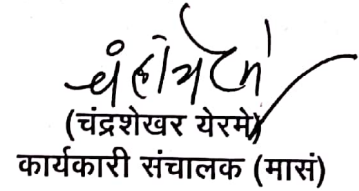 (चंद्रशेखर येरमे)
कार्यकारी संचालक (मासं)